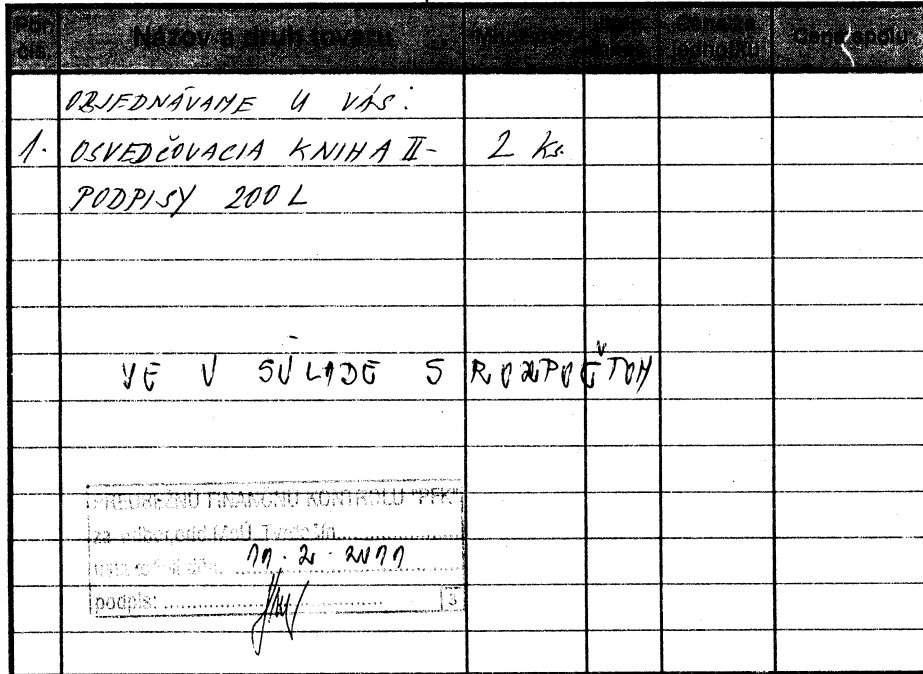 Por. čís. Názov a druh tovaru Množstvo Cena za jednotku Cena spolu
OBJEDNÁVAME U VÁS:
1. OSVEDČOVACIA KNIHA II- 2 Ks.
PODPISY 200 L
JE V SÚLADE S ROZPOČTOM
PREDBEŽNÚ FINANČNÚ KONTROLU "PFK"
za odbor, odd. MsÚ Tvrdošín
11.2.2011
podpis: 3